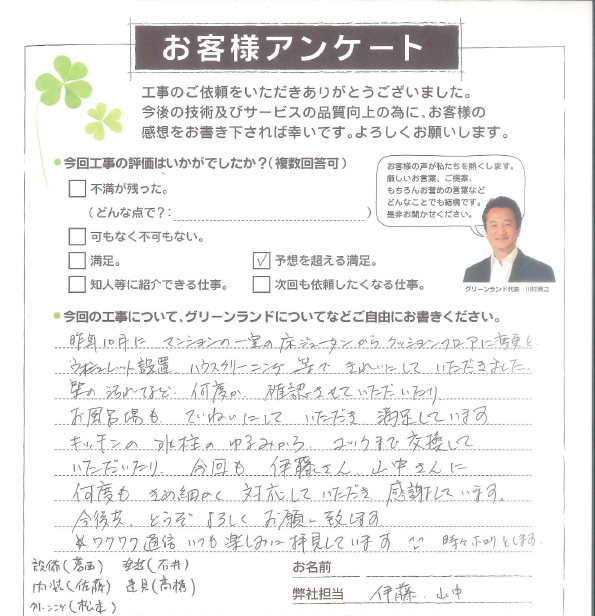 お客様アンケート
工事のご依頼をいただきありがとうございました。
今後の技術及びサービスの品質向上の為に、お客様の
感想をお書き下されば幸いです。よろしくお願いします。
今回工事の評価はいかがでしたか？(複数回答可)
不満が残った。
(どんな点で？: )
可もなく不可もない。
満足。
✓ 予想を超える満足。
知人等に紹介できる仕事。
次回も依頼したくなる仕事。
お客様の声が私たちを熱くします。
厳しいお言葉、ご提案、
もちろんお誉めの言葉など
どんなことでも結構です。
是非お聞かせください。
グリーンランド代表 川村寛之
今回の工事について、グリーンランドについてなどご自由にお書きください。
昨年10月に マンションの一室の床ジュータンから クッションフロアに変更と
ウオシュレット設置、ハウスクリーニング 等で きれいにして いただきました。
壁の汚れなど、何度か 確認させていただいたり
お風呂場も ていねいにして いただき 満足しています
キッチンの 水栓の ゆるみから、コックまで 交換して
いただいたり、今回も 伊藤さん、山中さんに
何度も きめ細かく 対応して いただき 感謝しています。
今後共、どうぞ よろしく お願い致します
※ワクワク通信 いつも 楽しみに 拝見しています 時々ホロリとします。
設備(葛西)
(石井)
内装(佐藤) 建具(高橋)
クリーニング(松本)
お名前
弊社担当 伊藤、山中